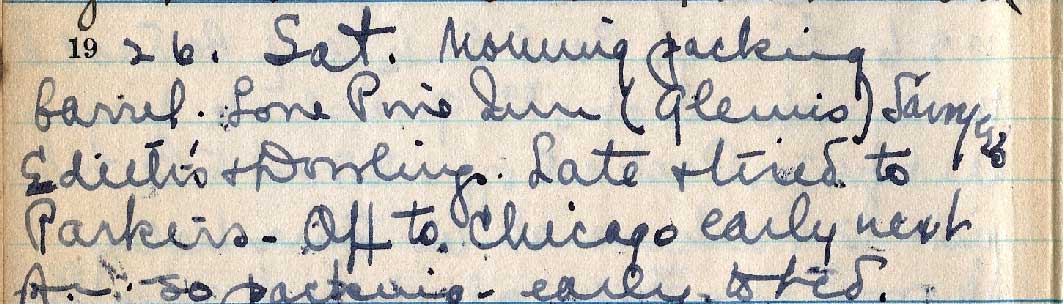 1926. Sat. Morning packing
barrel. Lone Pine Inn (Glennis)
Edith's & Dowlings. Late & tired to
Parkers - Off to Chicago early next
so packing - early to bed.